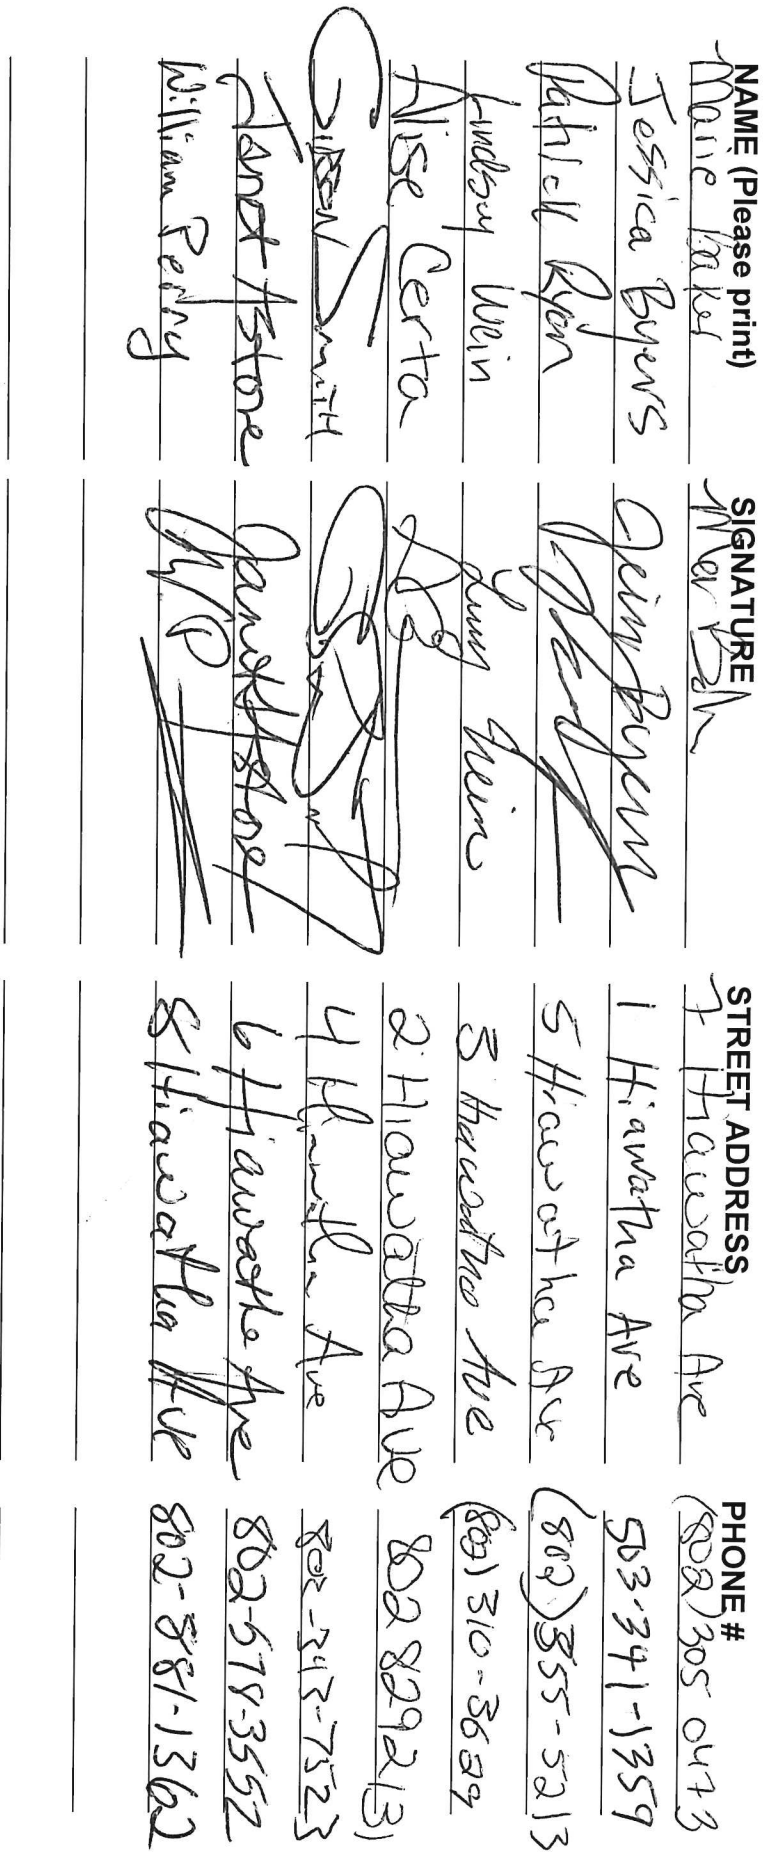 NAME (Please print) SIGNATURE STREET ADDRESS PHONE #
Marie Baker 7 Hiawatha Ave (802) 305 0473
Jessica Byers 1 Hiawatha Ave 503-341-1359
Patrick Ryan 5 Hiawatha Ave (802) 355-5213
Lindsay Wein 3 Hiawatha Ave (802) 310-3629
Alise Certa 2 Hiawatha Ave 802 829213)
Smith 4 Hiawatha Ave 802-343-7523
Janet Astore Janet Astore 6 Hiawatha Ave 802-578-3552
William Perry W P 8 Hiawatha Ave 802-881-1362